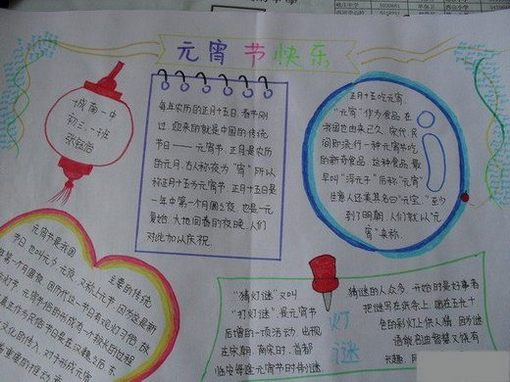 元宵节快乐
城南一中
初三.一班
每年农历的正月十五日,春节刚
过,迎来的就是中国的传统
节日——元宵节.正月是农历
的元月,古人称夜为“宵”所以
称正月十五为元宵节.正月十五日是
一年中第一个月圆之夜,也是一元
复始,大地回春的夜晚,人们
对此加以庆祝.
正月十五吃元宵,
“元宵”作为食品,在
我国也由来已久.宋代,民
间即流行一种元宵节吃
的新奇食品.这种食品,最
早叫“浮元子”后称“元宵”
生意人还美其名曰“元宝.”
到了明朝,人们就以“元
宵”来称.
元宵节是我国
主要的传统
节日,也叫元夕,元夜,又称上元节,因为这是新
第一个月圆夜,因历代这一节日有观灯习俗,故
灯节.元宵节俗的形成有一个较长的过程
“猜灯谜”又叫
“打灯谜”.是元宵节
后增的一项活动,出现
在宋朝.南宋时,首都
临安每逢元宵节时制谜
灯
谜
猜谜的人众多.开始时是好事者
把谜写在纸条上,贴在五光十
色的彩灯上供人猜.因为谜
语能启迪智慧又饶有
兴趣,